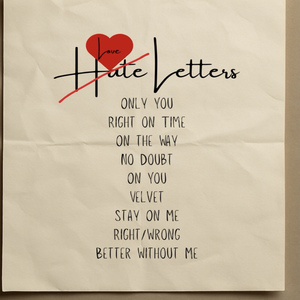 Love
Hate Letters
ONLY YOU
RIGHT ON TIME
ON THE WAY
NO DOUBT
ON YOU
VELVET
STAY ON ME
RIGHT/WRONG
BETTER WITHOUT ME